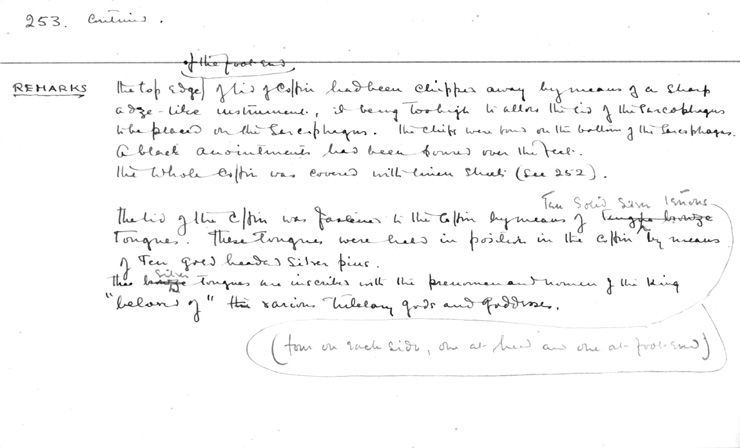 253. Continued.
of the foot-end
REMARKS the top edge of lid of Coffin had been chipped away by means of a sharp
adze-like instrument, it being too high to allow the lid of the Sarcophagus
to be placed on the Sarcophagus. The chips were found on the bottom of the Sarcophagus.
A black anointments had been poured over the feet.
The whole Coffin was covered with linen sheets (see 252).
Ten Solid Silver tenons
The lid of the Coffin was fastened to the Coffin by means of bronze
Tongues. These tongues were held in position in the Coffin by means
of Ten gold headed silver pins.
Silver
The bronze tongues are inscribed with the prenomen and nomen of the King
"beloved of" the various tutelary gods and goddesses.
(four on each side, one at head and one at foot-end)